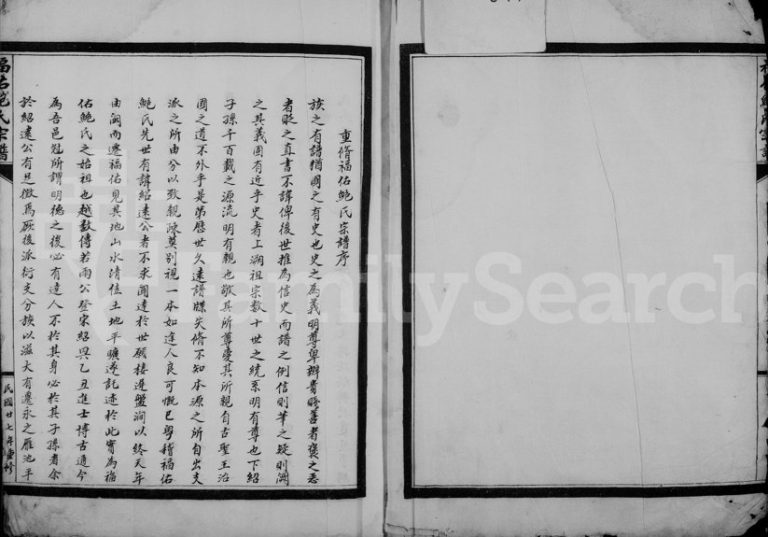 重脩福佑鮑氏宗譜序
族之有譜猶國之有史也史之為義明尊卑辨賢嗤善者褒之惡
者貶之直書不諱俾後世推為信史而譜之例信則筆之疑則闕
之其義固有近乎史者上溯祖宗數十世之統系明有尊也下紹
子孫千百載之源流明有親也敬其所尊愛其所親自古聖王治
國之道不外乎是第歷世久遠譜牒失脩不知本源之所自出支
派之所由分以致親疎莫別視一本如途人良可慨已粵稽福佑
鮑氏先世有諱紹遠公者不求聞達於世願棲遲盤澗以終天年
由閩而遷福佑見其地山水清佳土地平曠遂託迹於此實為福
佑鮑氏之始祖也越數傳若雨公登宋紹興乙丑進士博古通今
為吾邑冠所謂明德之後必有達人不於其身必於其子孫者余
於紹遠公有足徵焉厥後派衍支分族以滋大有遷永之雁池平
福佑鮑氏宗譜
民國廿七年重修
FamilySearch